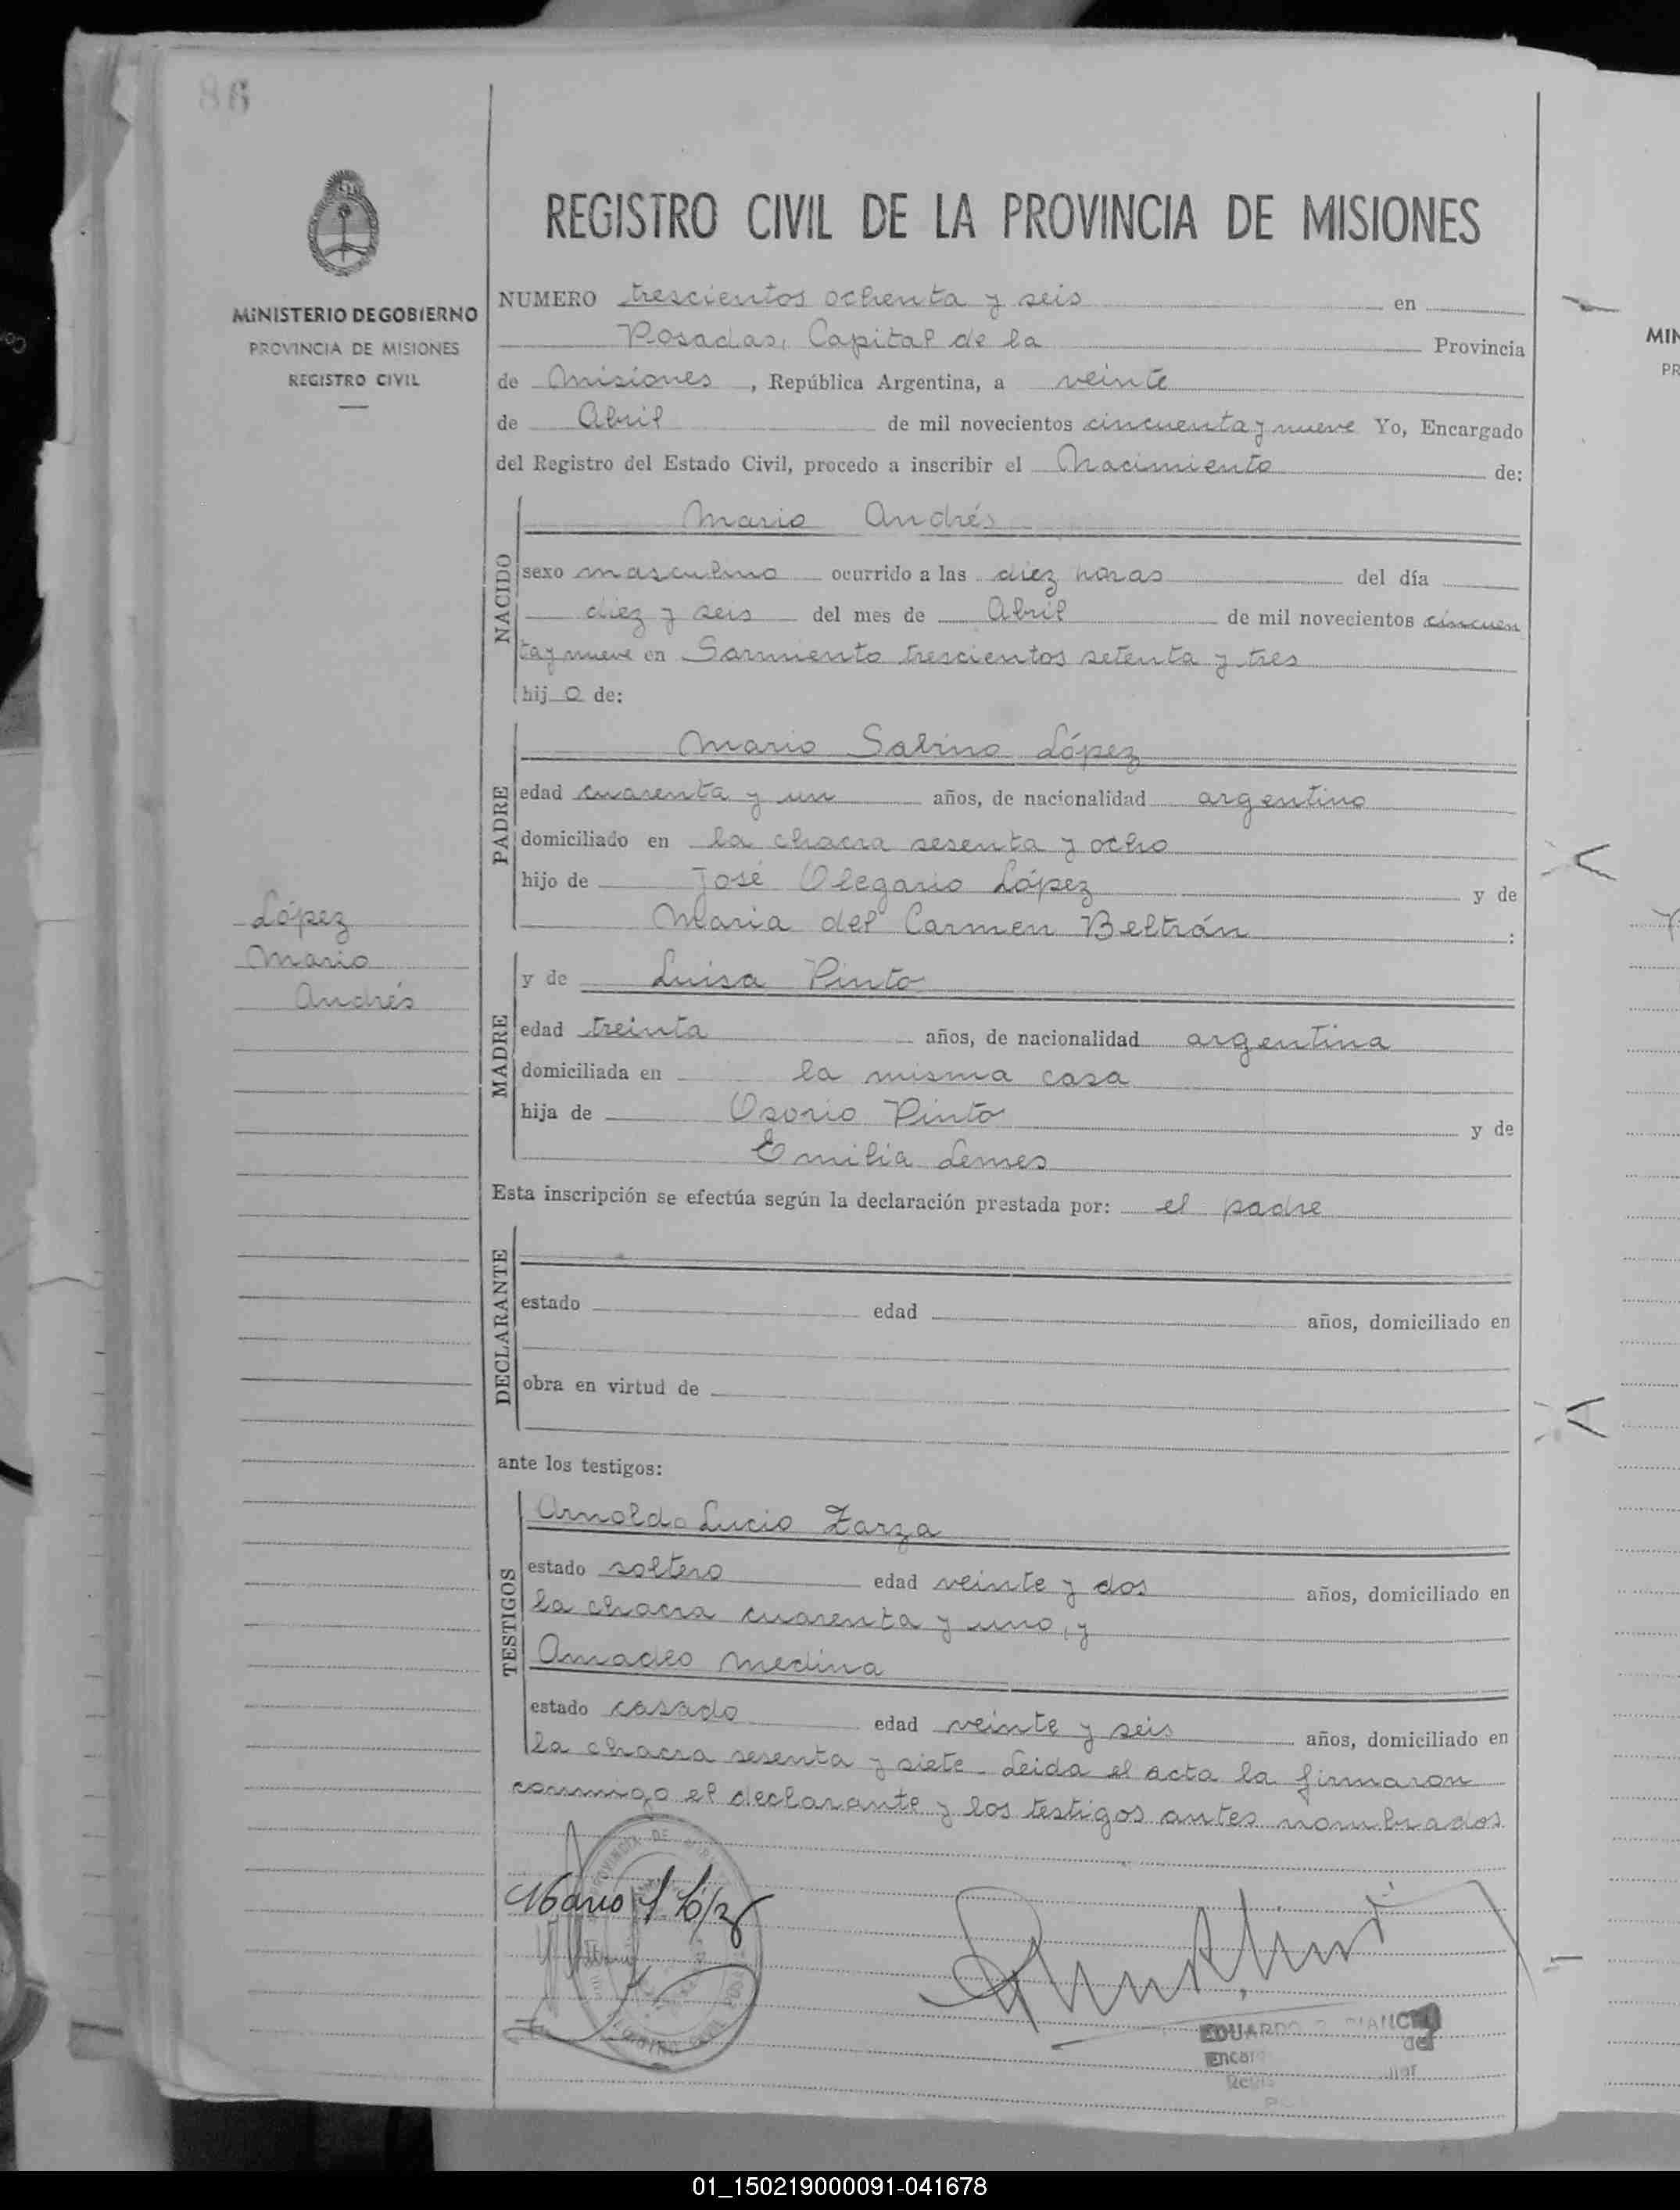 86
REGISTRO CIVIL DE LA PROVINCIA DE MISIONES
MINISTERIO DE GOBIERNO
PROVINCIA DE MISIONES
REGISTRO CIVIL
NUMERO trescientos ochenta y seis en
Posadas, Capital de la Provincia
de Misiones, República Argentina, a veinte
de Abril de mil novecientos cincuenta y nueve Yo, Encargado
del Registro del Estado Civil, procedo a inscribir el Nacimiento de:
NACIDO
Mario Andrés
sexo masculino ocurrido a las diez horas del día
diez y seis del mes de Abril de mil novecientos cincuen
ta y nueve en Sarmiento trescientos setenta y tres
hijo de:
PADRE
Mario Sabino López
edad cuarenta y un años, de nacionalidad argentino
domiciliado en la chacra sesenta y ocho
hijo de José Olegario López y de
Maria del Carmen Beltrán :
López
Mario
Andrés
MADRE
y de Luisa Pinto
edad treinta años, de nacionalidad argentina
domiciliada en la misma casa
hija de Osorio Pinto y de
Emilia Lemes
Esta inscripción se efectúa según la declaración prestada por: el padre
DECLARANTE
estado edad años, domiciliado en
obra en virtud de
ante los testigos:
TESTIGOS
Arnoldo Lucio Zarza
estado soltero edad veinte y dos años, domiciliado en
la chacra cuarenta y uno, y
Amadeo Medina
estado casado edad veinte y seis años, domiciliado en
la chacra sesenta y siete. Leida el acta la firmaron
conmigo el declarante y los testigos antes nombrados
Mario S López
EDUARDO
01_150219000091-041678